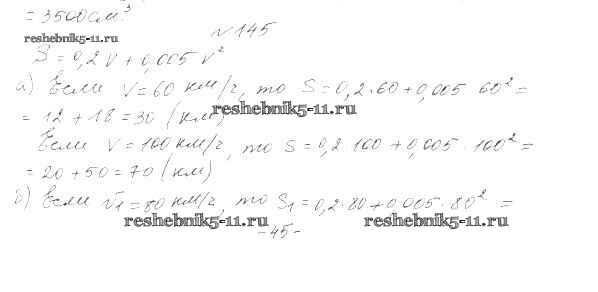 = 3500 см³
reshebnik5-11.ru
№ 145
S = 0,2 v + 0,005 v²
а) Если v = 60 км/г, то S = 0,2 · 60 + 0,005 · 60² =
= 12 + 18 = 30 (км)
reshebnik5-11.ru
Если v = 100 км/г, то S = 0,2 · 100 + 0,005 · 100² =
= 20 + 50 = 70 (км)
б) Если v₁ = 80 км/г, то S₁ = 0,2 · 80 + 0,005 · 80² =
reshebnik5-11.ru reshebnik5-11.ru
- 45 -